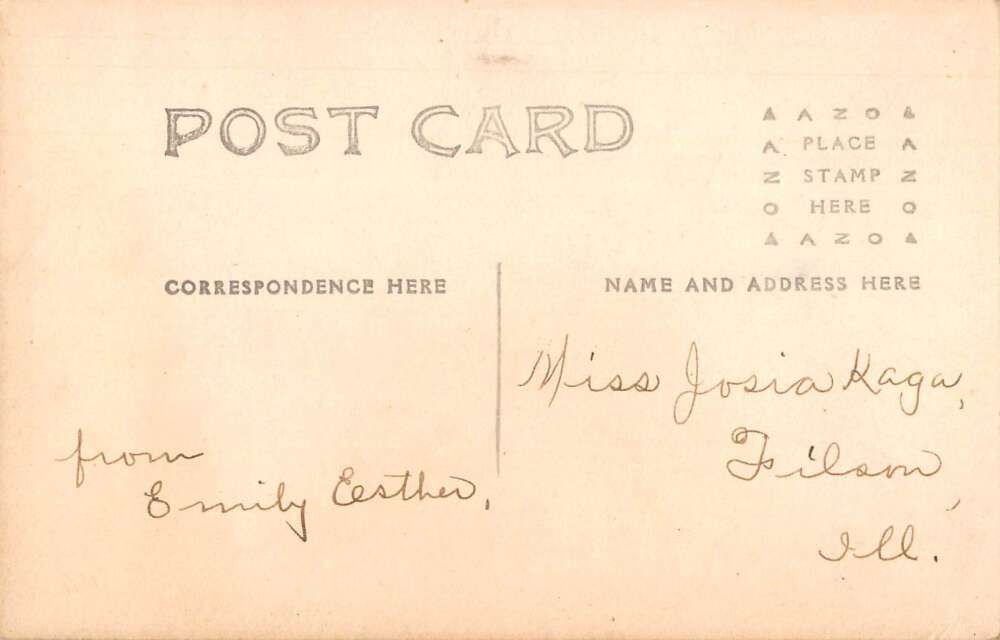 POST CARD
▲ A Z O ▲
A PLACE A
Z STAMP Z
O HERE O
▲ A Z O ▲
CORRESPONDENCE HERE
NAME AND ADDRESS HERE
Miss Josia Kaga,
Filson,
Ill.
from
Emily Eesther,